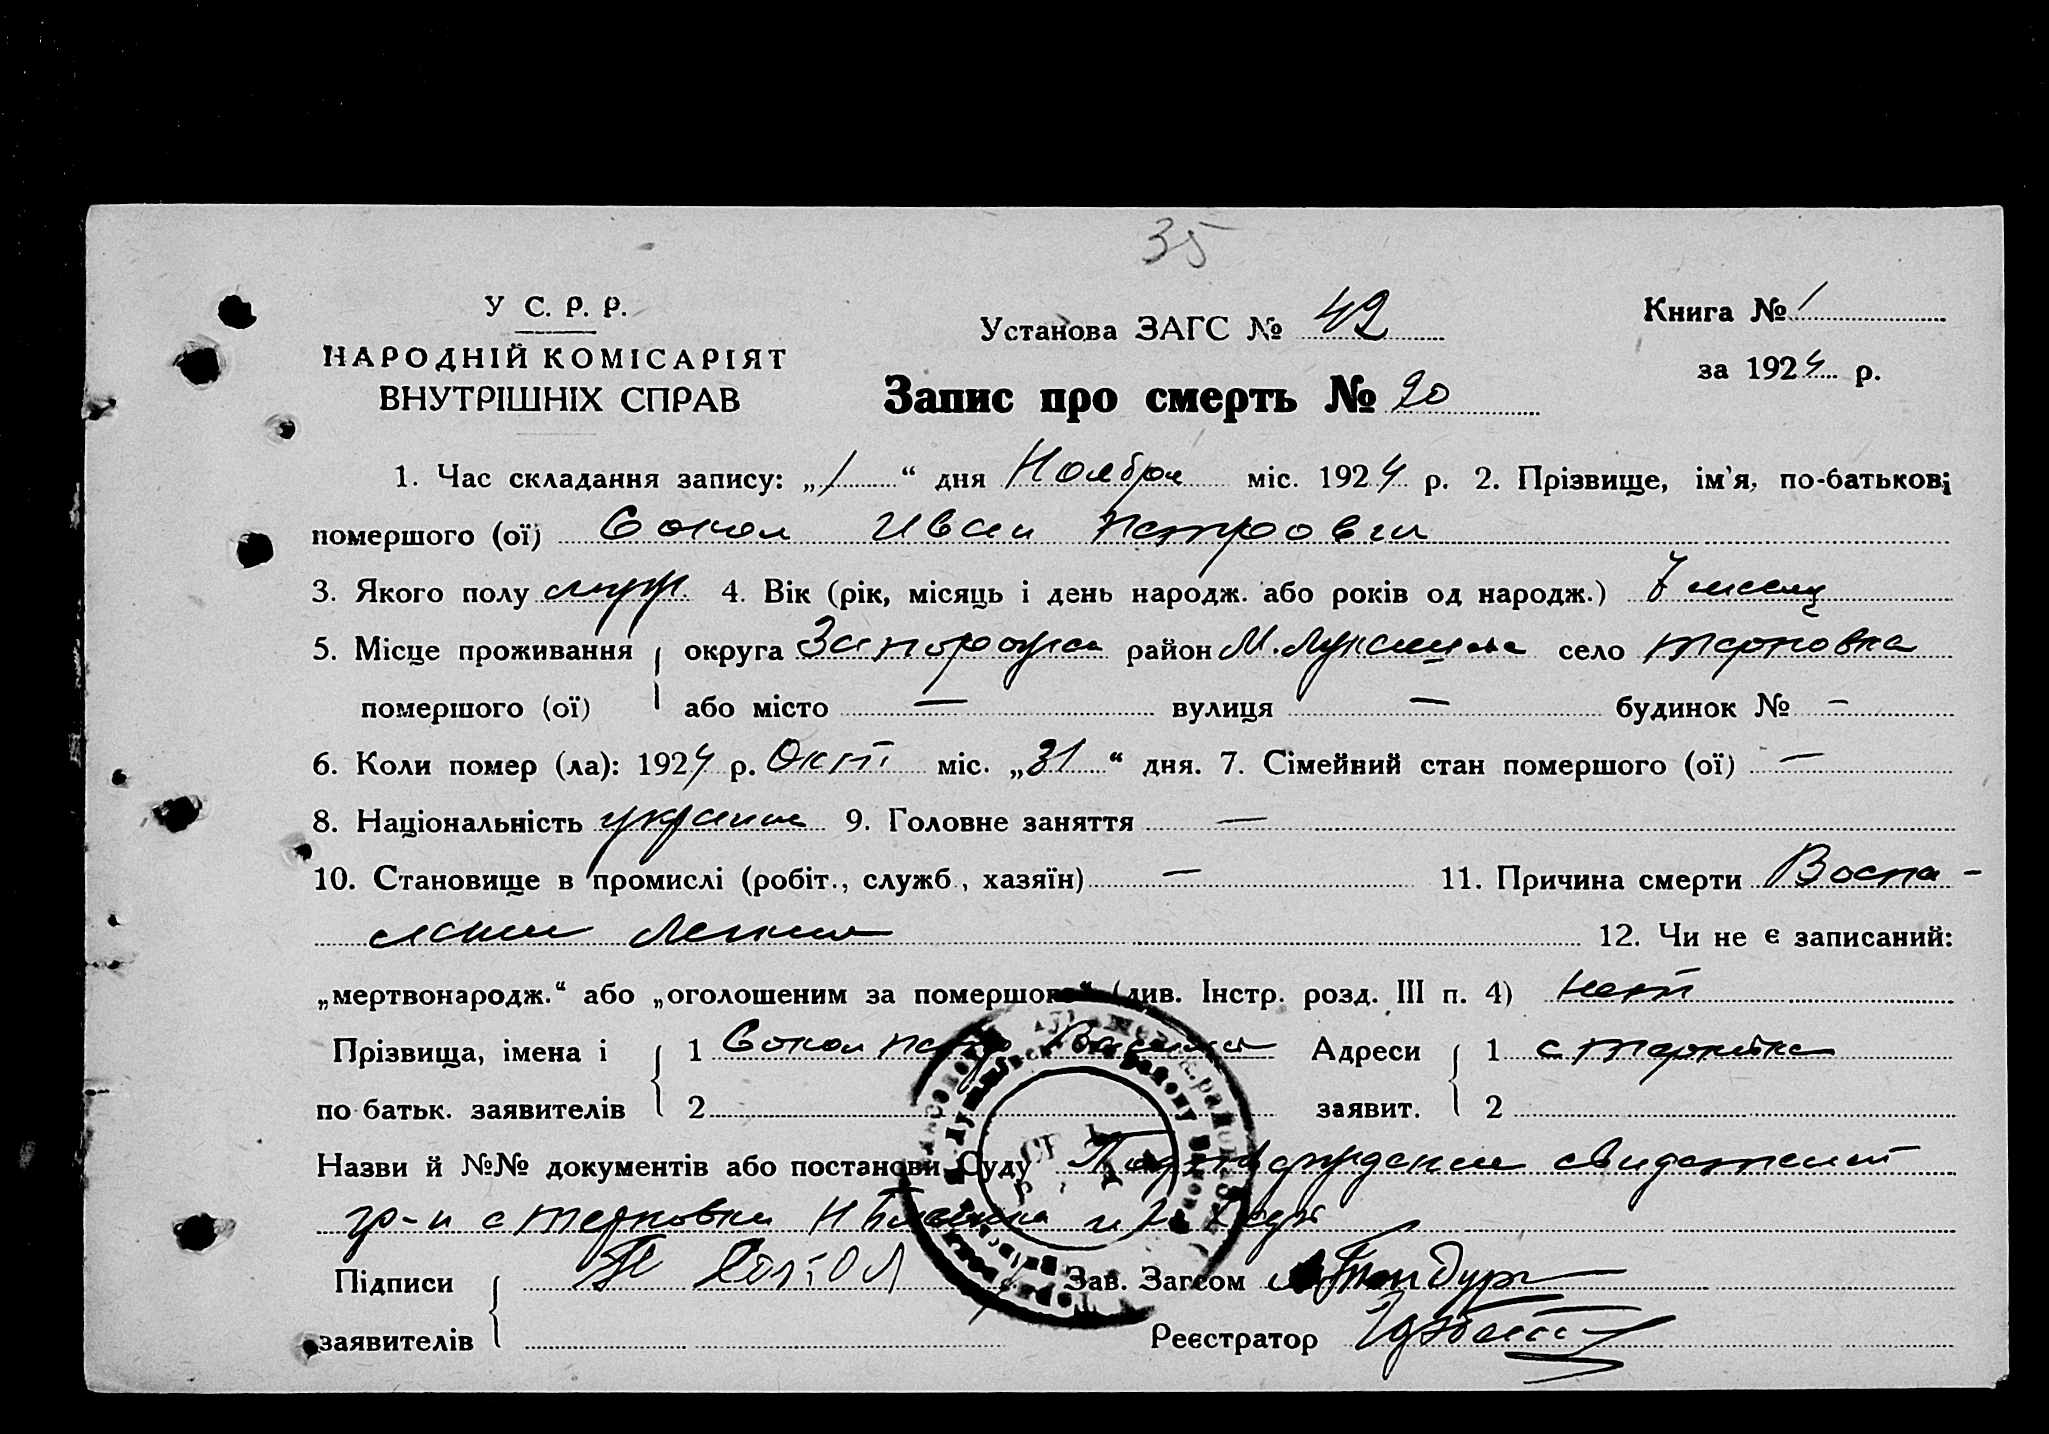 35
У С. Р. Р.
НАРОДНІЙ КОМІСАРІЯТ
ВНУТРІШНІХ СПРАВ
Установа ЗАГС № 42
Запис про смерть № 20
Книга № 1
за 1924 р.
1. Час складання запису: „1“ дня Ноября міс. 1924 р. 2. Прізвище, ім'я, по-батькові
помершого (ої) Сокол Иван Петрович
3. Якого полу муж. 4. Вік (рік, місяць і день народж. або років од народж.) 7 месяц
5. Місце проживання округа Запорожск район М. село Терновка
помершого (ої) або місто — вулиця — будинок № —
6. Коли помер (ла): 1924 р. Окт. міс. „31“ дня. 7. Сімейний стан помершого (ої) —
8. Національність украин 9. Головне заняття —
10. Становище в промислі (робіт., служб., хазяїн) — 11. Причина смерти Воспа-
ление Легких 12. Чи не є записаний:
„мертвонародж.“ або „оголошеним за помершого“ (див. Інстр. розд. III п. 4) нет
Прізвища, імена і 1 Сокол Петр Адреси 1 с Терновка
по батьк. заявителів 2 заявит. 2
Назви й №№ документів або постанови Суду Подтверждение свидетелей
гр-н с Терновки
Підписи П Сокол Зав. Загсом
заявителів Реєстратор